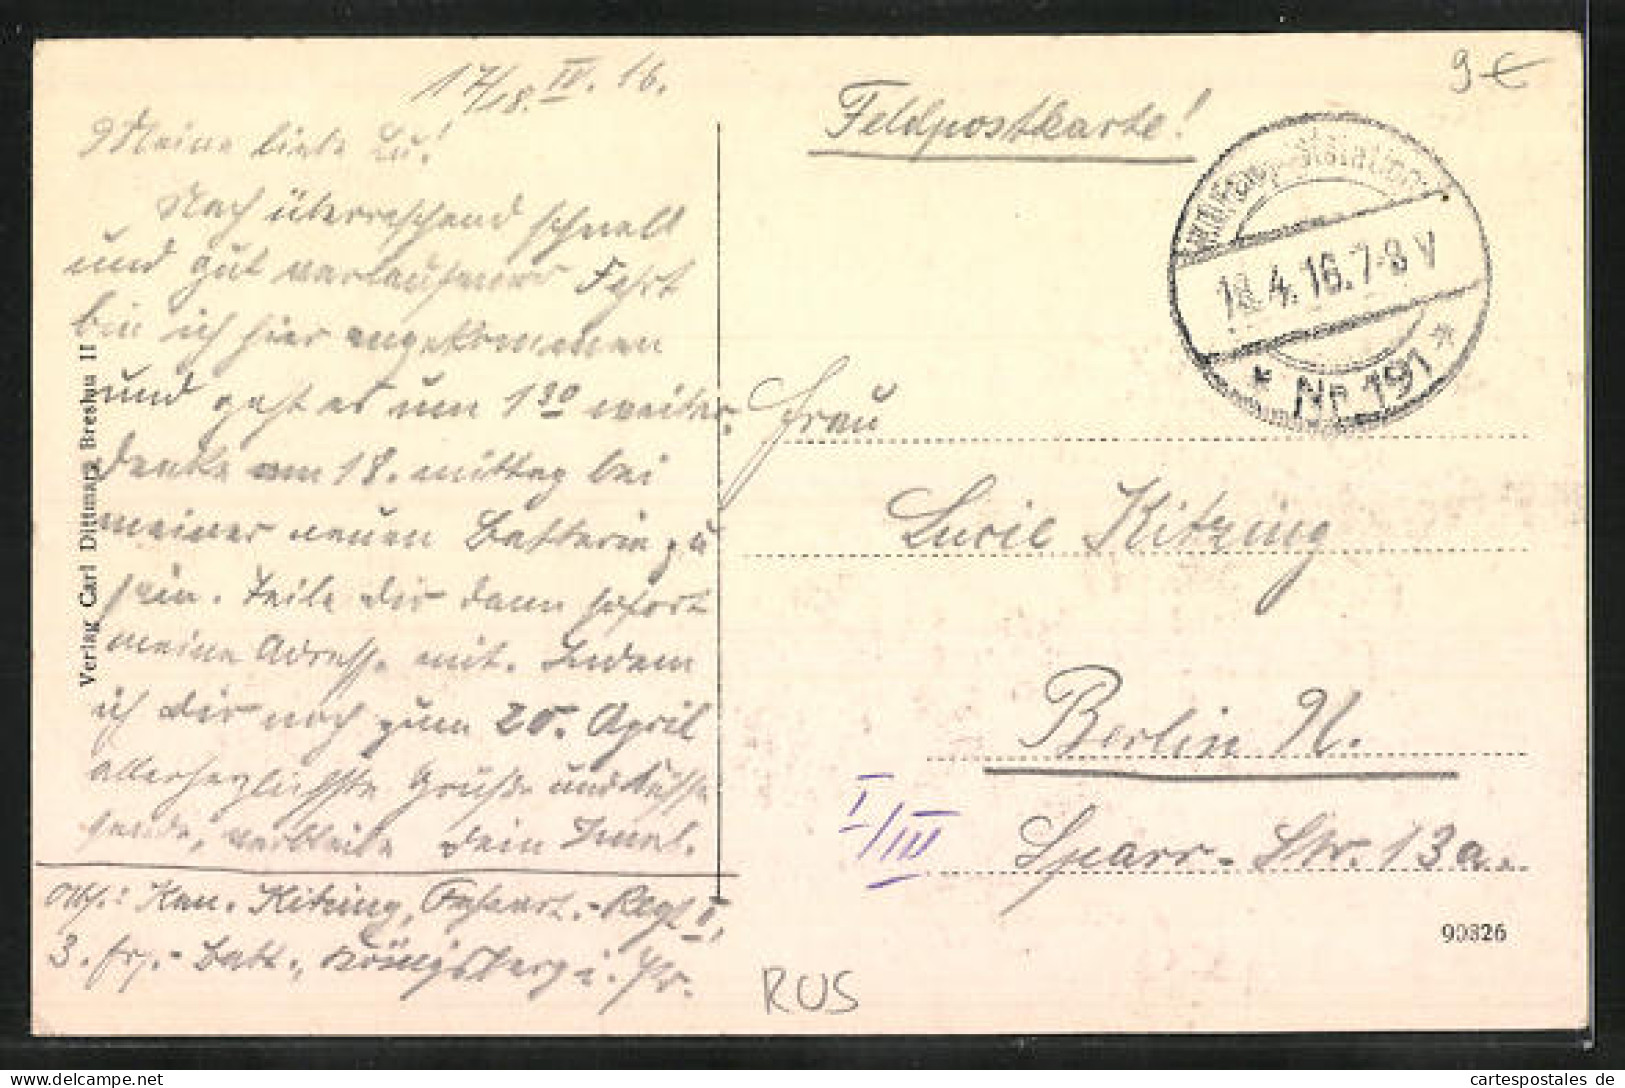 17/18. IV. 16.
Meine liebe Lu!
Nach überraschend schnell
und gut verlaufener Fahrt
bin ich hier angekommen
und geht es um 1 30 weiter.
Denke am 18. mittag bei
meiner neuen Batterie zu
sein. Teile dir dann sofort
meine Adresse mit. Indem
ich dir noch zum 20. April
allerherzlichste Grüße und Küsse
sende, verbleibe dein
Abs.: Kan. Kitzing, Fußart.-Regt
3. Ers.-Batt., Königsberg i. Pr.
Verlag Carl Dittmars Breslau II
Feldpostkarte!
9 €
18.4.16.7-8 V
* Nr. 191 *
Frau
Lucie Kitzing
Berlin N.
I/III
Sparr-Str. 13a.
90826
RUS
cartespostales de